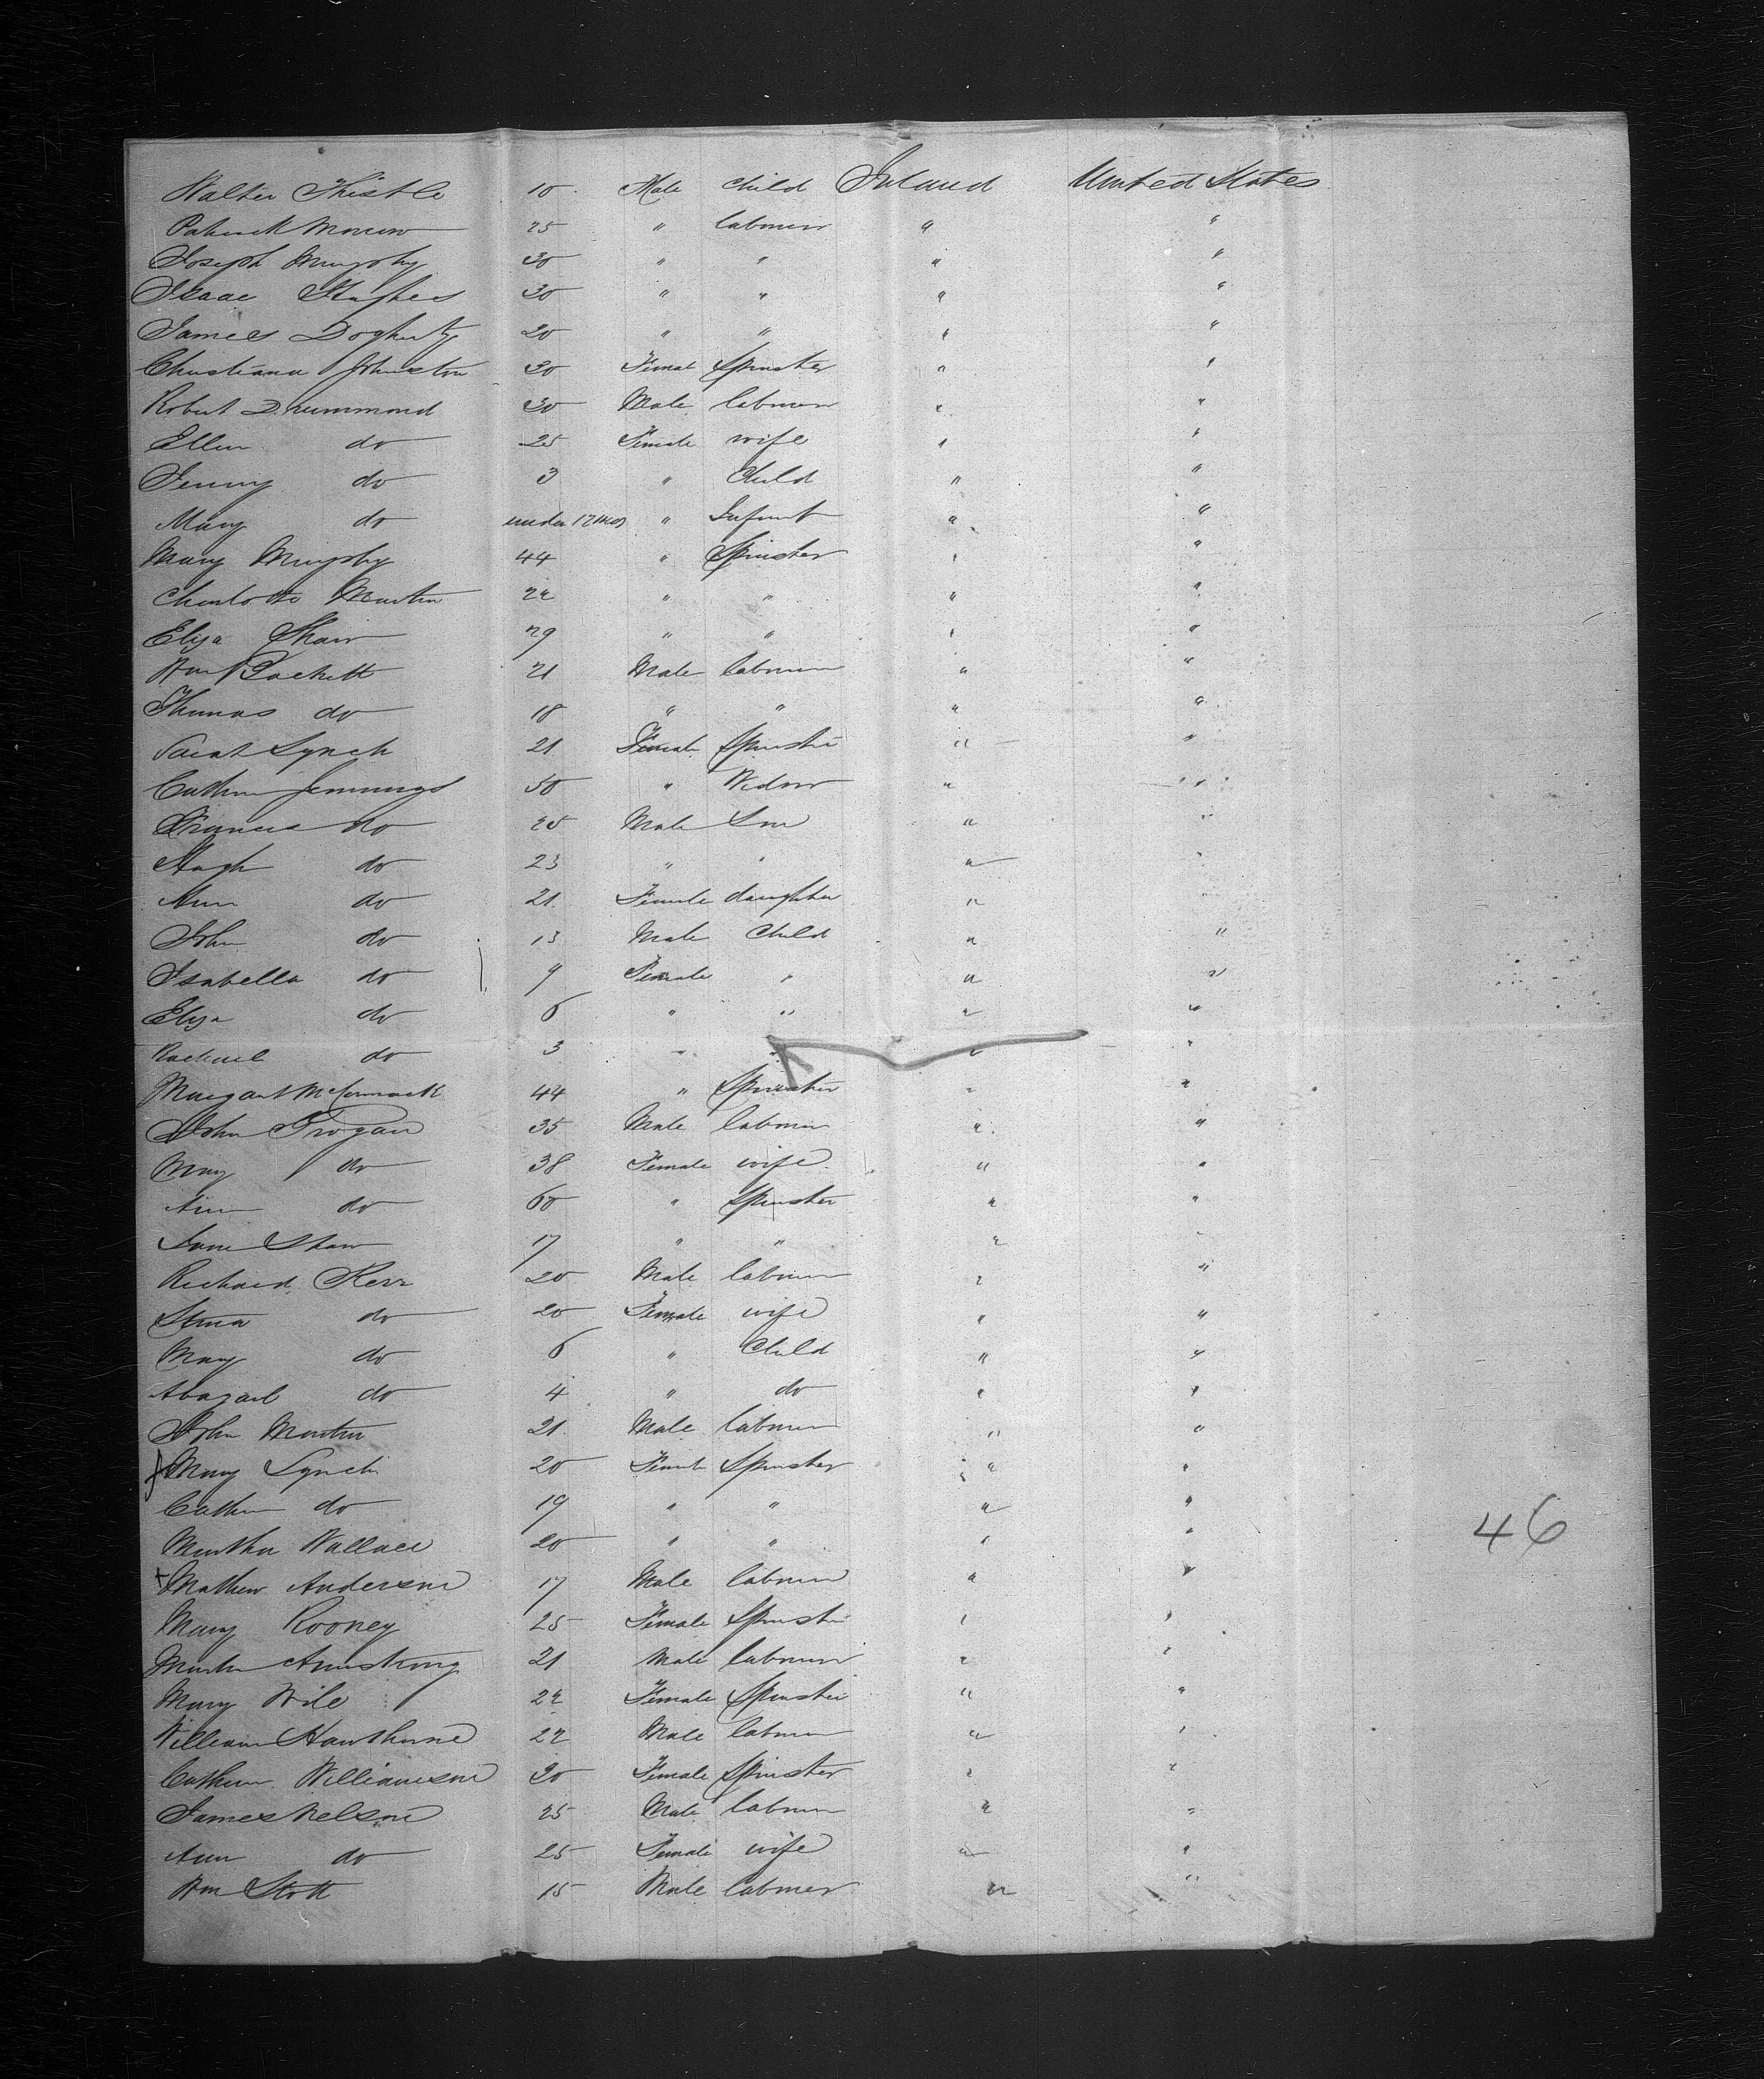 Walter Thistle 10 Male Child Ireland United States
Patrick Morrow 25 " labourer " "
Joseph Murphy 30 " " " "
Isaac Hughes 30 " " " "
James Dogherty 20 " " " "
Christiana Johnston 30 Femal Spinster " "
Robert Drummond 30 Male labourer " "
Ellen do 25 Female wife " "
Jenny do 3 " Child " "
Mary do under 12 mos " Infant " "
Mary Murphy 44 " Spinster " "
Charlotte Martin 22 " " " "
Eliza Shaw 29 " " " "
Wm 21 Male labourer " "
Thomas do 18 " " " "
Lynch 21 Female Spinster " "
Cathrn Jennings 50 " Widow " "
Francis do 25 Male Son " "
Hugh do 23 " " " "
Ann do 21 Female daughter " "
John do 13 Male Child " "
Isabella do 9 Female " " "
Eliza do 6 " " " "
Rachael do 3 " " " "
Margaret McCormack 44 " Spinster " "
John Grogan 35 Male labourer " "
Mary do 38 Female wife " "
Ann do 60 " Spinster " "
Jane Shaw 17 " " " "
Richard Kerr 20 Male labourer " "
do 20 Female wife " "
Mary do 6 " Child " "
Abagail do 4 " do " "
John Martin 21 Male labourer " "
Mary Lynch 20 Femal Spinster " "
Cathrn do 19 " " " "
Martha Wallace 20 " " " "
46
+ Mathew Anderson 17 Male labourer " "
Mary Rooney 25 Female Spinster " "
Martin Armstrong 21 Male labourer " "
Mary Wile 22 Female Spinster " "
William Hawthorne 22 Male labourer " "
Cathern Williamson 30 Female Spinster " "
James Nelson 25 Male labourer " "
Ann do 25 Female wife " "
Wm Stott 15 Male labourer " "